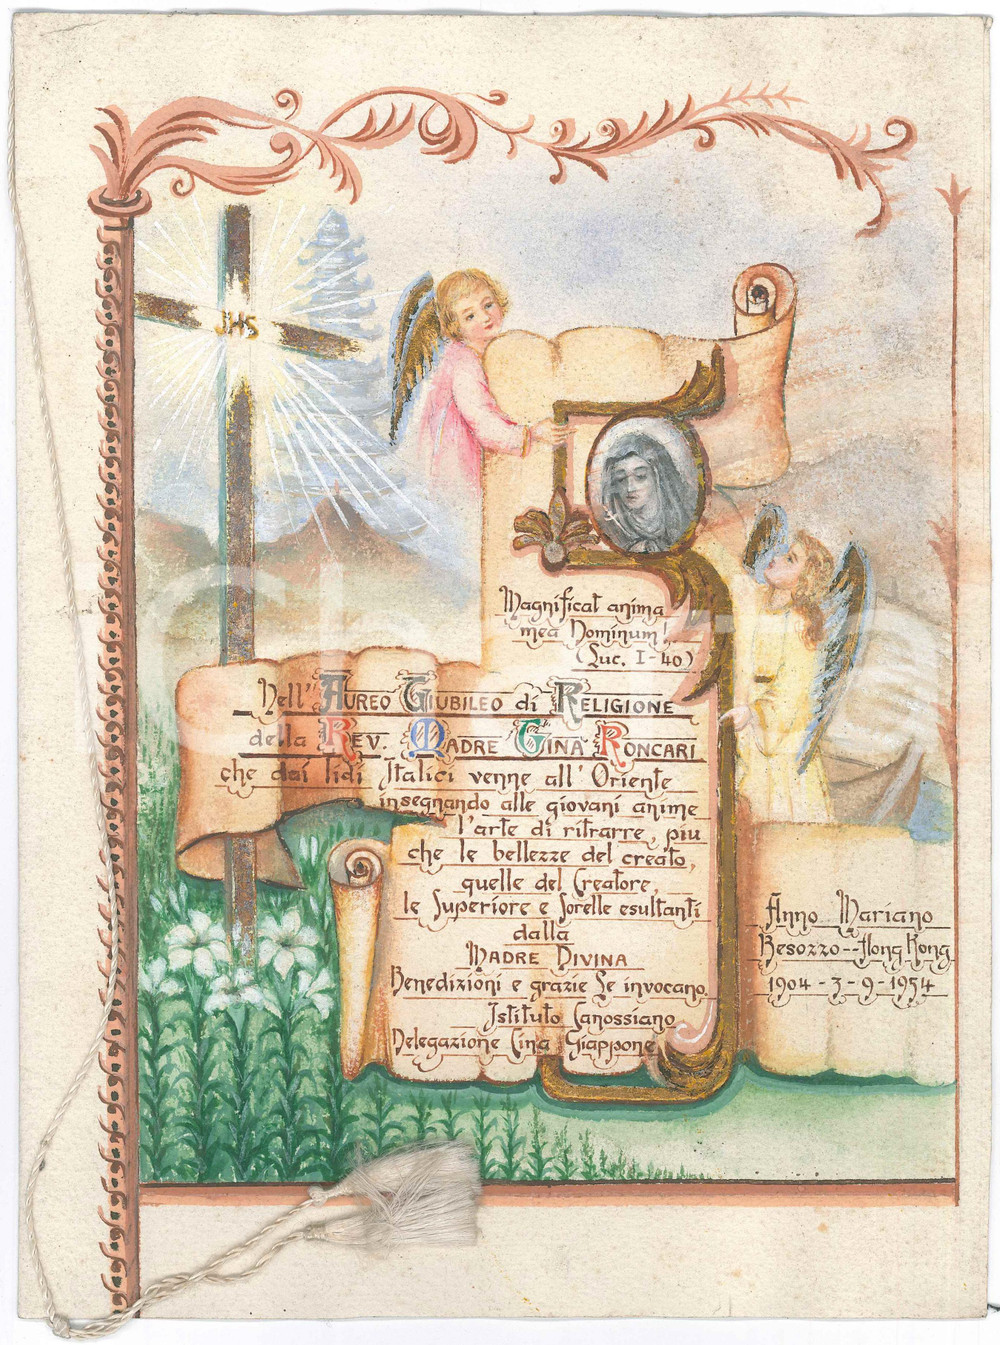 JHS
Magnificat anima
mea Dominum!
(Luc. I-40)
Nell' Aureo Giubileo di Religione
della Rev. Madre Gina Roncari
che dai lidi Italici venne all' Oriente
insegnando alle giovani anime
l'arte di ritrarre, più
che le bellezze del creato,
quelle del Creatore,
le Superiore e Sorelle esultanti
dalla
Madre Divina
Benedizioni e grazie Le invocano.
Istituto Canossiano
Delegazione Cina Giappone
Anno Mariano
Besozzo--Hong Kong
1904-3-9-1954